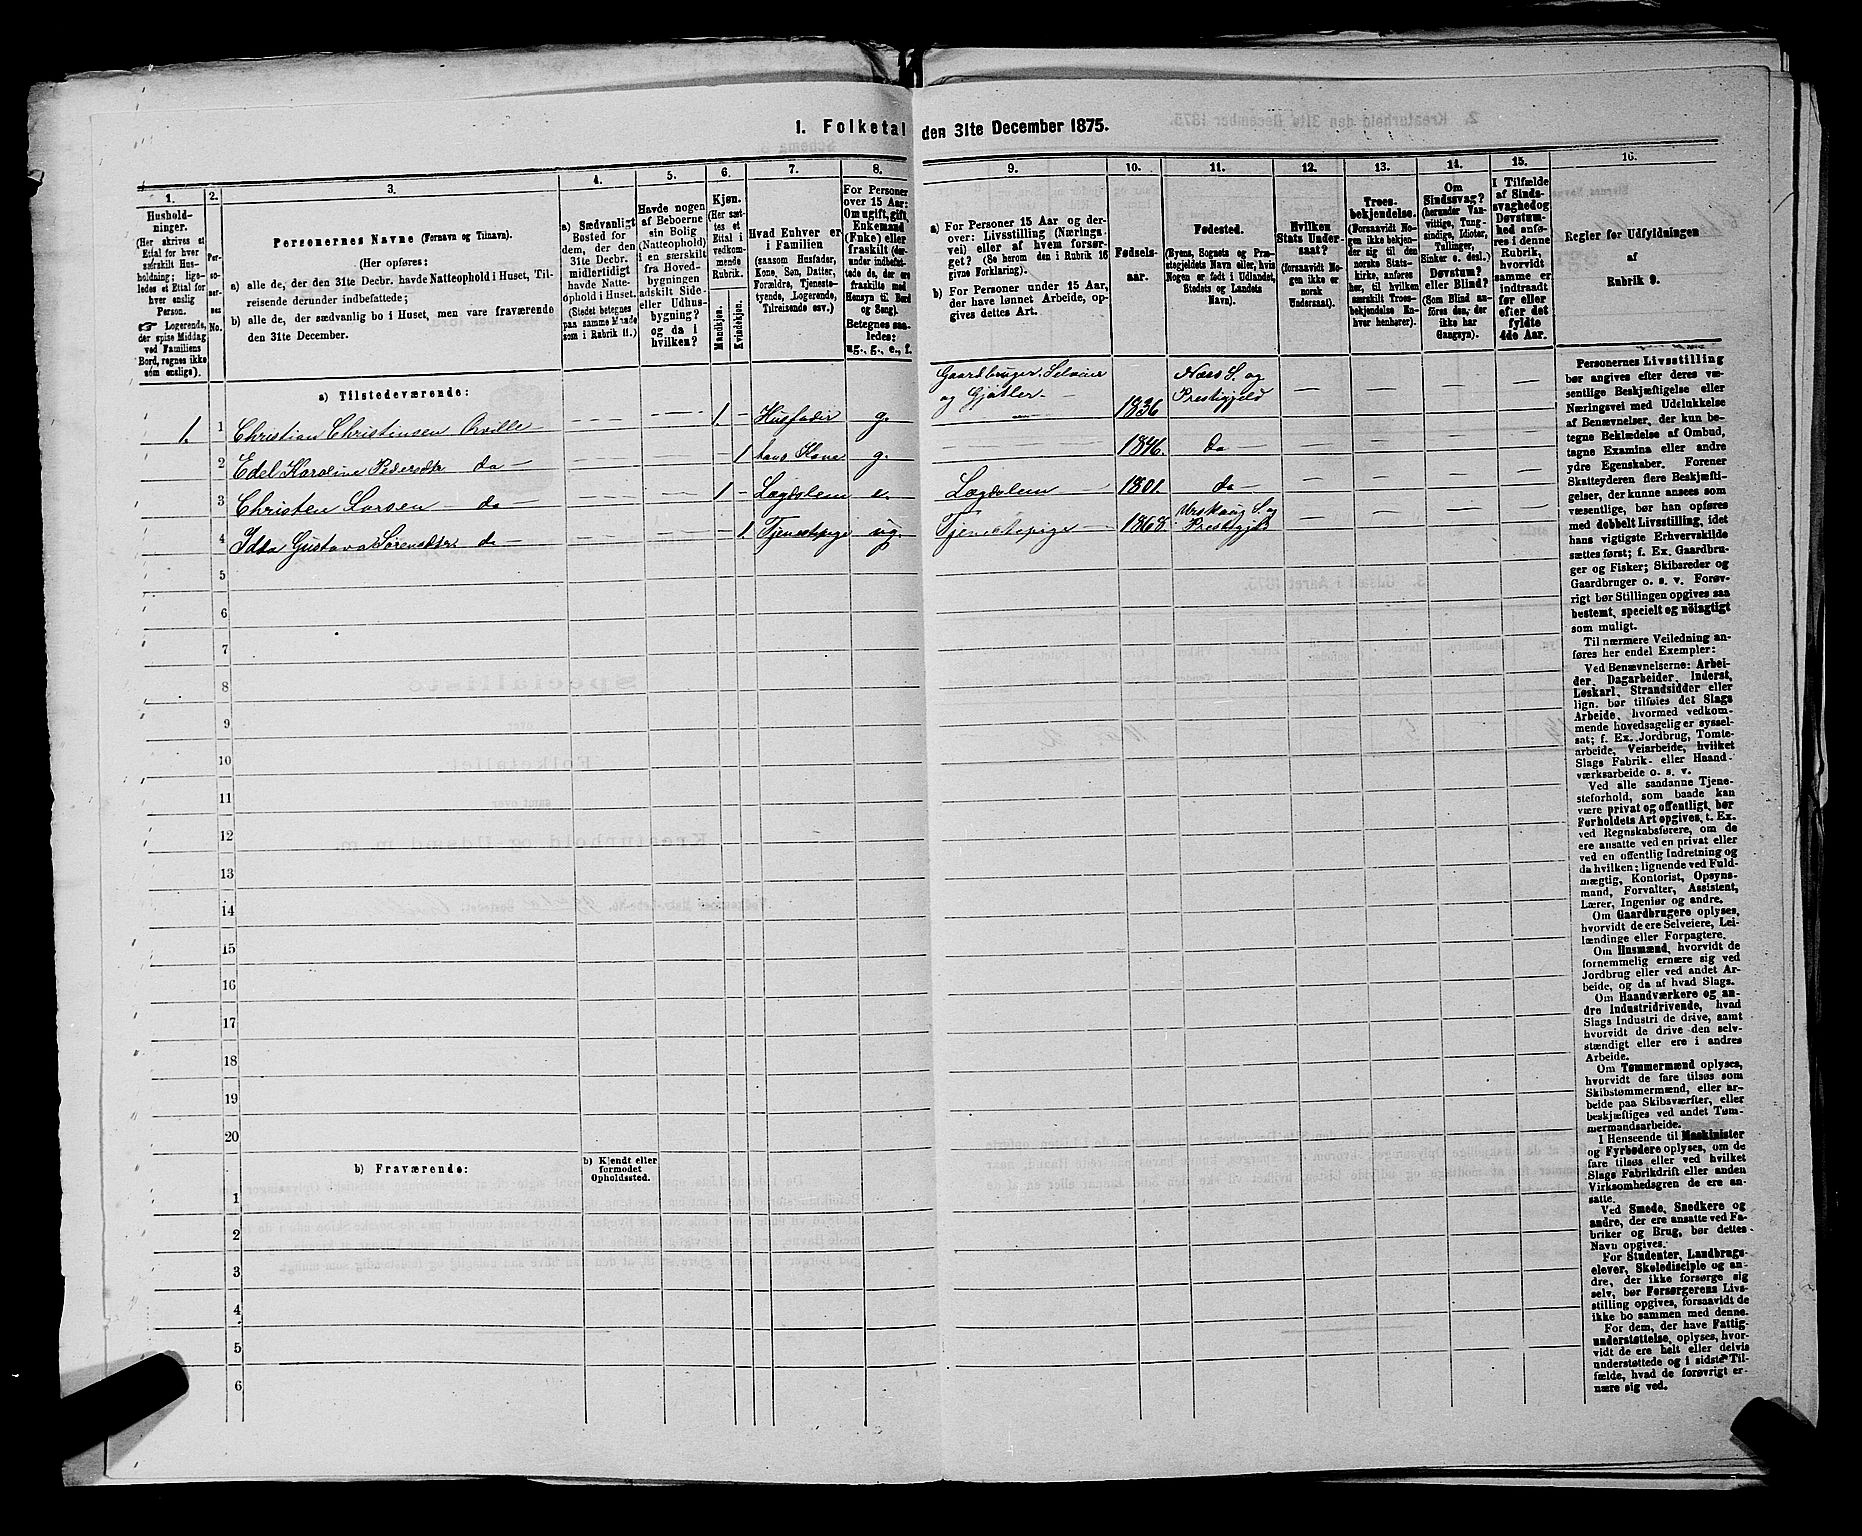 1. Folketal den 31te December 1875.
1.
Hushold-
ninger.
(Her skrives et
Ettal for hver
særskilt Hus-
holdning; lige-
ledes et Ettal for
hver enslig
Person.
☞ Logerende,
der spise Middag
ved Familiens
Bord, regnes ikke
som enslige).
2.
No.
3.
Personernes Navne (Fornavn og Tilnavn).
(Her opføres:
a) alle de, der den 31te Decbr. havde Natteophold i Huset, Til-
reisende derunder indbefattede;
b) alle de, der sædvanlig bo i Huset, men vare fraværende
den 31te December.
4.
a) Sædvanligt
Bosted for
dem, der den
31te Decbr.
midlertidigt
havde Natte-
ophold i Huset.
(Stedet betegnes
paa samme Maade
som i Rubrik 11.)
5.
Havde nogen
af Beboerne
sin Bolig
(Natteophold)
i en særskilt
fra Hoved-
bygningen
adskilt Side-
eller Udhus-
bygning?
og da i
hvilken?
6.
Kjøn.
(Her sæt-
tes et
Ettal i
vedkom-
mende
Rubrik.
Mandkjøn.
Kvindekjøn.
7.
Hvad Enhver er
i Familien
(saasom Husfader,
Kone, Søn, Datter,
Forældre, Tjeneste-
tyende, Logerende,
Tilreisende osv.)
8.
For Personer
over 15 Aar:
Om ugift, gift,
Enkemand
(Enke) eller
fraskilt (der-
under indbefat-
tede de, der ere
fraskilte med
Hensyn til Bord
og Seng).
Betegnes saa-
ledes:
ug., g., e., f.
9.
a) For Personer 15 Aar og der-
over: Livsstilling (Nærings-
vei) eller af hvem forsør-
get? (Se herom den i Rubrik 16
givne Forklaring).
b) For Personer under 15 Aar,
der have lønnet Arbeide, op-
gives dettes Art.
10.
Fødsels-
aar.
11.
Fødested.
(Byens, Sognets og Præ-
stegjeldets Navn eller, hvis
Nogen er født i Udlandet,
Stedets og Landets
Navn).
12.
Hvilken
Stats Under-
saat?
(forsaavidt No-
gen ikke er
norsk
Undersaat).
13.
Troes-
bekjendelse.
(Forsaavidt No-
gen ikke bekjen-
der sig til den
norske Stats-
kirke, anføres
her, til hvilken
særskilt Troes-
bekjendelse En-
hver henhører).
14.
Om
Sindssvag?
(herunder Van-
vittige, Tung-
sindige, Idioter,
Tullinger,
Sinker o. desl.)
Døvstum?
eller Blind?
(Som Blind an-
føres den, der
ikke har
Gangsyn).
15.
I Tilfælde
af Sinds-
svaghed og
Døvstum-
hed anfø-
res i denne
Rubrik,
hvorvidt
samme er
indtraadt
før eller
efter det
fyldte
4de Aar.
16.
Regler for Udfyldningen
af
Rubrik 9.
a) Tilstedeværende:
Gaardbruger, Selveier
og Gjøtler
1. 1 Christian Christensen Orville — 1. Husfader g. 1836 Næs S. og Prestigjeld
2 Edel Karoline Pedersdtr do — 1 hans Kone g. 1846. do
3 Christen Larsen — do — 1 Lægdslem e. Lægdslem 1801. do
4 Idda Gustava Sørensdtr do — 1 Tjenestepige ug. Tjenestepige 1868. Urskoug S. og Prestigjeld
5
6
7
8
9
10
11
12
13
14
15
16
17
18
19
20
b) Fraværende:
b) Kjendt eller
formodet
Opholdssted.
1
2
3
4
5
6
Personernes Livsstilling
bør angives efter deres væ-
sentlige Beskjæftigelse eller
Næringsvei med Udelukkelse
af Benævnelser, der kun be-
tegne Beklædelse af Ombud,
tagne Examina eller andre
ydre Egenskaber. Forener
Skatteyderen flere Beskjæfti-
gelser, der kunne ansees som
væsentlige, bør han opføres
med dobbelt Livsstilling, idet
hans vigtigste Erhvervskilde
sættes først; f. Ex. Gaardbru-
ger og Fisker; Skibsreder og
Gaardbruger o. s. v. Forøv-
rigt bør Stillingen opgives saa
bestemt, specielt og nøiagtigt
som muligt.
Til nærmere Veiledning an-
føres her endel Exempler:
Ved Benævnelserne: Arbei-
der, Dagarbeider, Inderst,
Løskarl, Strandsidder eller
lign. bør tilføies det Slags
Arbeide, hvormed vedkom-
mende hovedsagelig er syssel-
sat; f. Ex. Jordbrug, Tomte-
arbeide, Veiarbeide, hvilket
Slags Fabrik- eller Haand-
værksarbeide o. s. v.
Ved alle saadanne Tjene-
steforhold, som baade kan
være privat og offentligt, bør
Forholdets Art opgives, t. Ex.
ved Regnskabsførere, om de
ere ansatte ved en privat eller
ved en offentlig Indretning og
da hvilken; lignende ved Fuld-
mægtig, Kontorist, Opsyns-
mand, Forvalter, Assistent,
Lærer, Ingeniør og andre.
Om Gaardbrugere oplyses,
hvorvidt de ere Selveiere, Lei-
lændinge eller Forpagtere.
Om Husmænd, hvorvidt de
fornemmelig ernære sig ved
Jordbrug eller ved andet Ar-
beide, og da af hvad Slags.
Om Haandværkere og an-
dre Industridrivende, hvad
Slags Industri de drive, samt
hvorvidt de drive den selv-
stændigt eller ere i andres
Arbeide.
Om Tømmermænd oplyses,
hvorvidt de fare tilsøs som
Skibstømmermænd, eller ar-
beide paa Skibsværfter, eller
beskjæftiges ved andet Tøm-
mermandsarbeide.
I Henseende til Maskinister
og Fyrbødere oplyses, om de
fare tilsøs eller ved hvilket
Slags Fabrikdrift eller anden
Virksomhedsgren de ere an-
satte.
Ved Smede, Snedkere og
andre, der ere ansatte ved Fa-
briker og Brug, bør dettes
Navn opgives.
For Studenter, Landbrugs-
elever, Skoledisciple og an-
dre, der ikke forsørge sig
selv, bør Forsørgerens Livs-
stilling opgives, forsaavidt de
ikke bo sammen med denne.
For dem, der have Fattig-
understøttelse, oplyses, hvor-
vidt de ere helt eller delvis
understøttede og i sidste Til-
fælde, hvad de forøvrigt er-
nære sig ved.